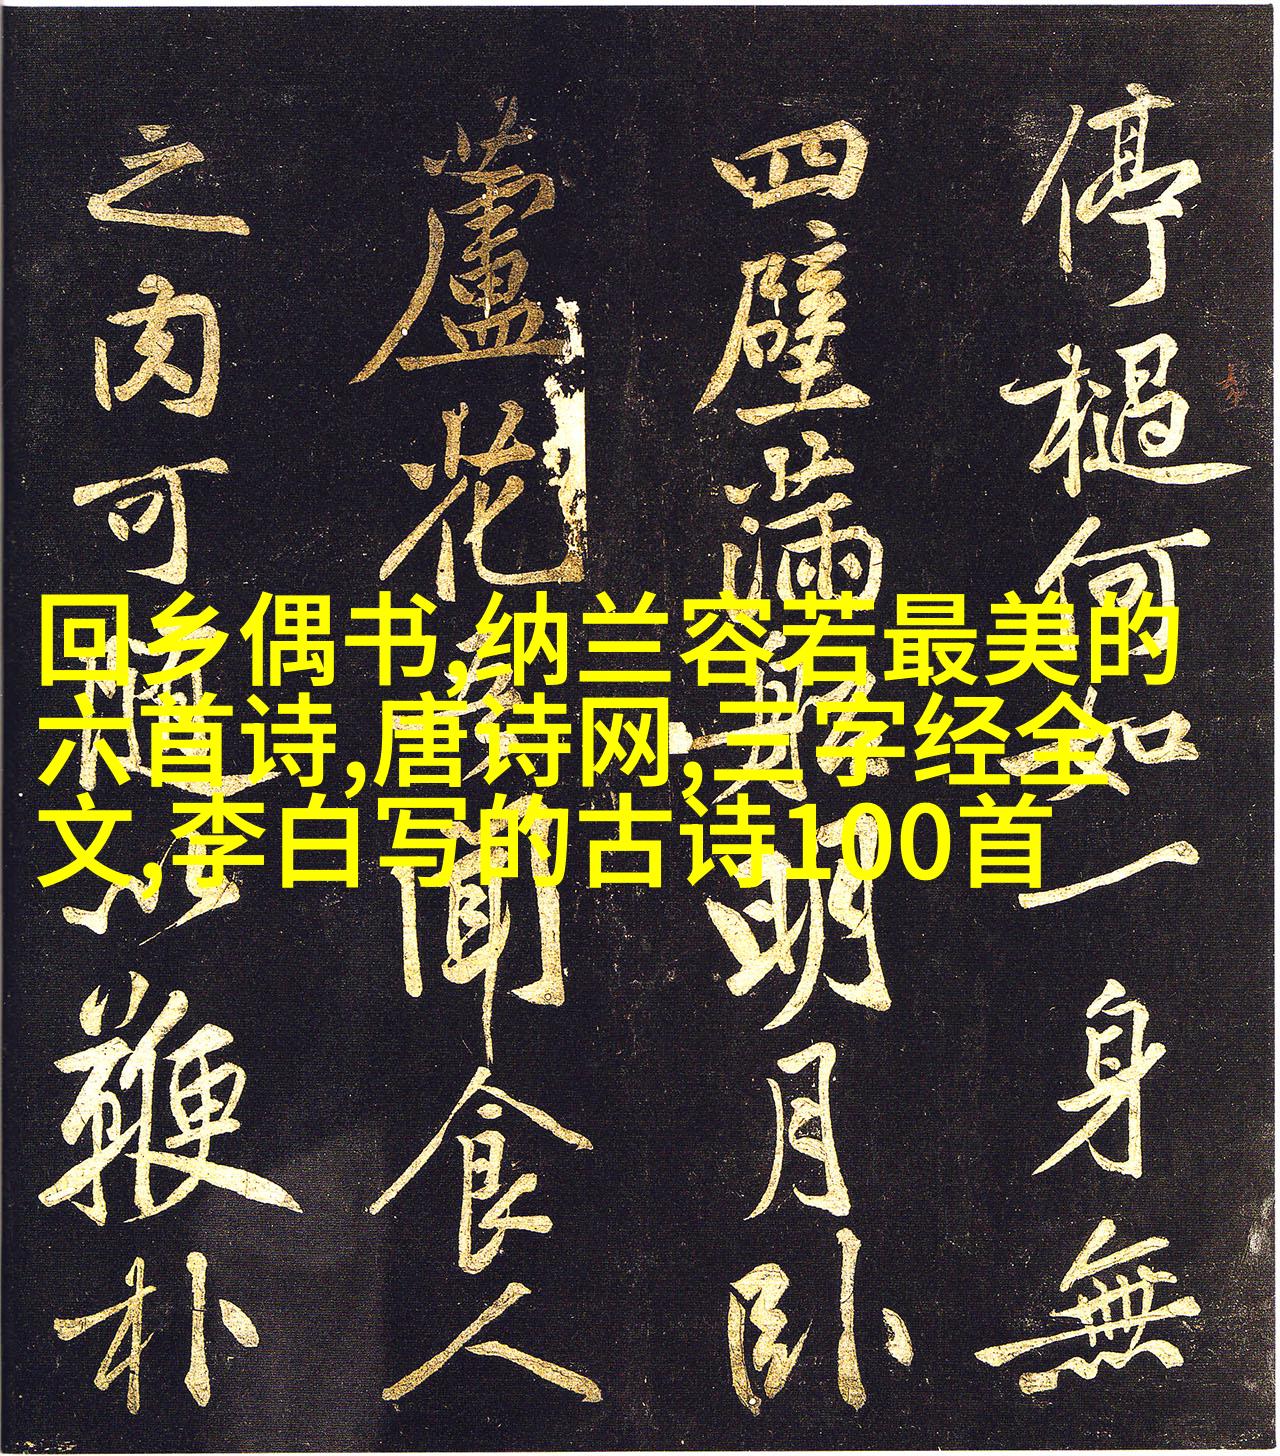 回乡偶书,纳兰容若最美的
六首诗,唐诗网,三字经全
文,李白写的古诗100首
停檛何如一身無
四壁滿明月臥
蘆花聞食人
之肉可隨以鞭朴